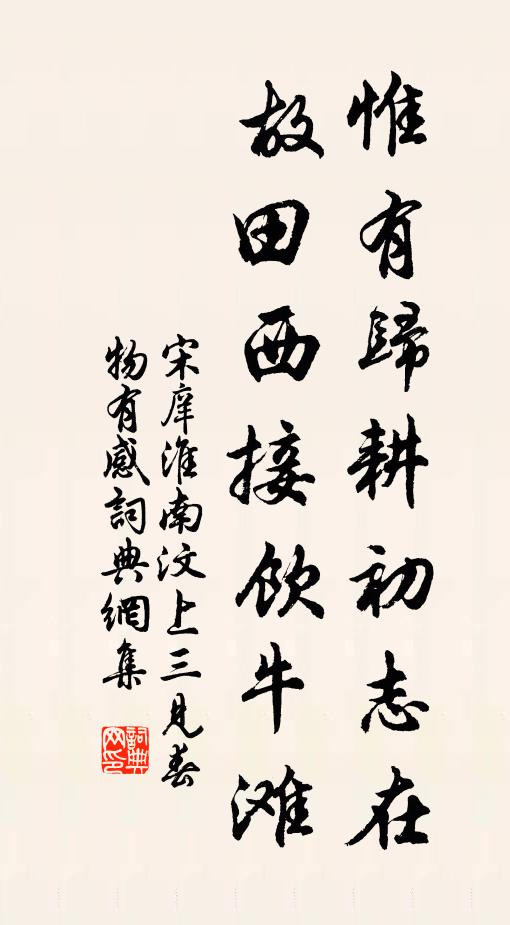 惟有歸耕初志在
故田西接飲牛滩
宋庠淮南汶上三見春
物有感詞典網集
詞典网印